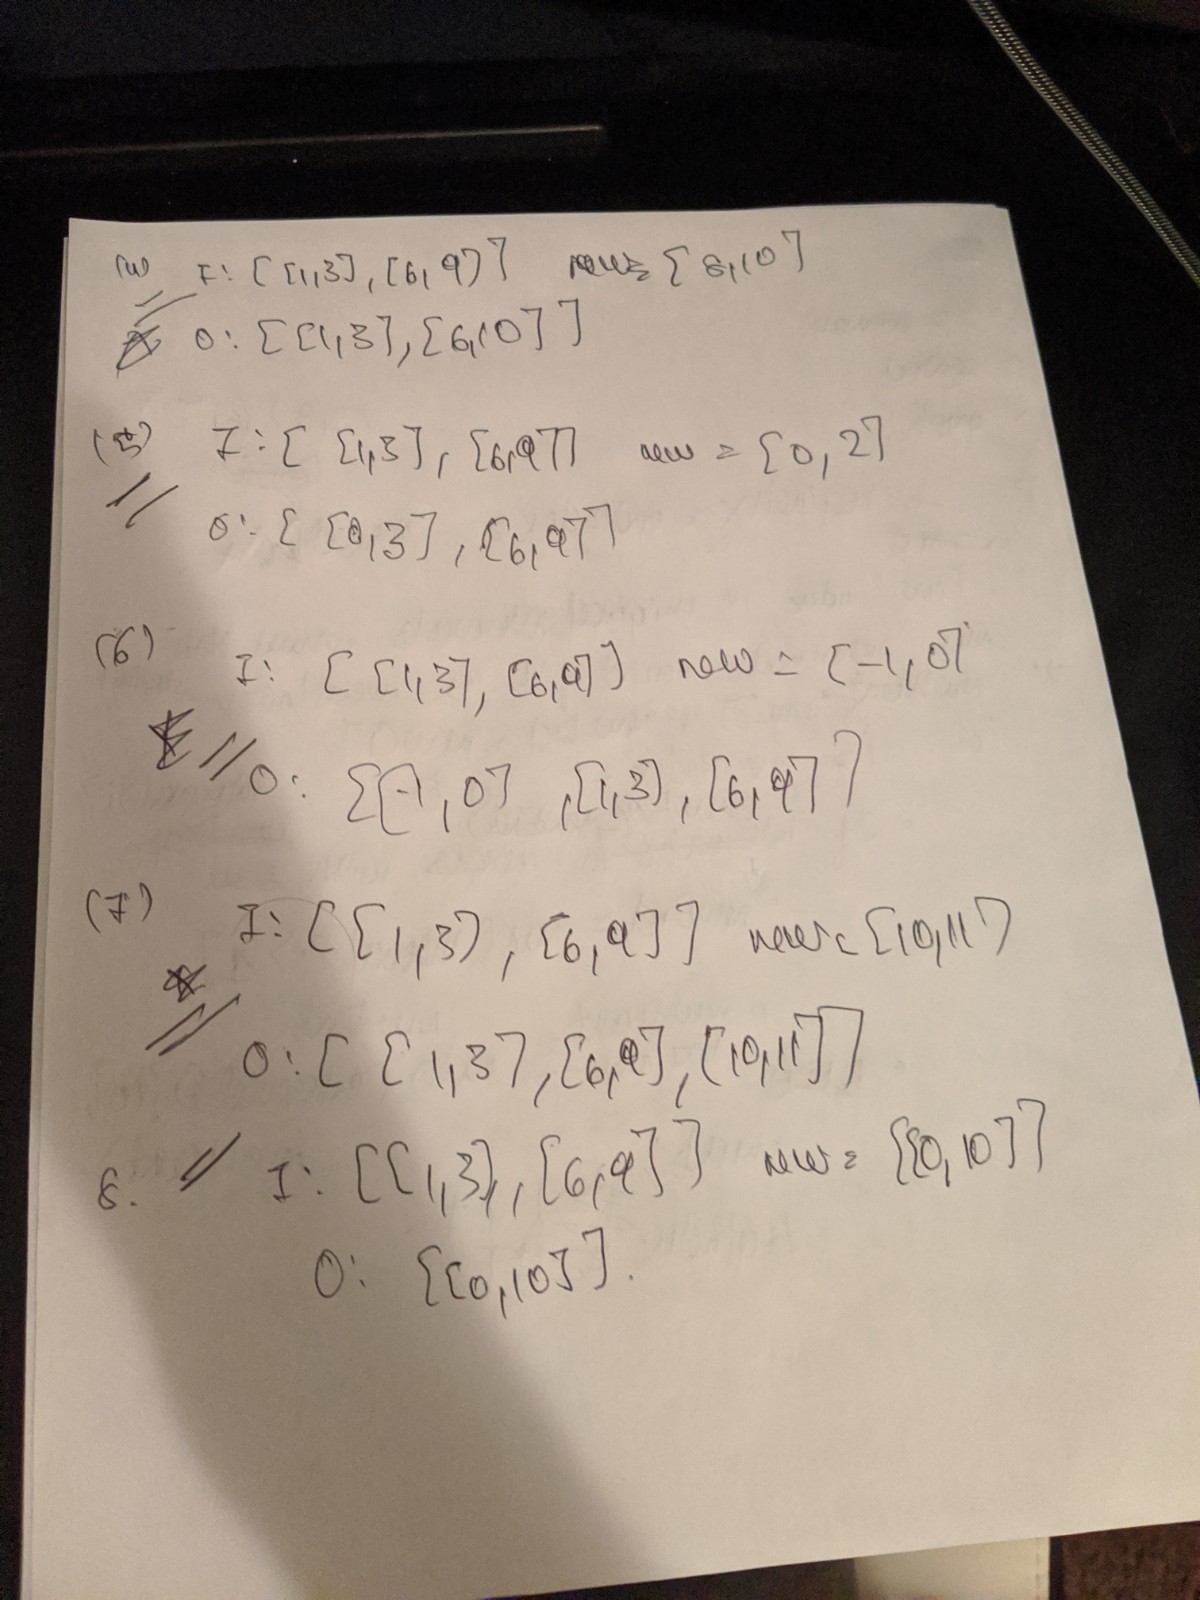 (4) I: [[1,3],[6,9]] new= [8,10]
O: [[1,3],[6,10]]
(5) I: [ [1,3], [6,9]] new = [0,2]
O: [ [0,3], [6,9]]
(6) I: [ [1,3], [6,9]] new = [-1,0]
O: [[-1,0] ,[1,3], [6,9]]
(7) I: [[1,3], [6,9]] new= [10,11]
O: [ [1,3],[6,9],[10,11]]
8. I: [[1,3],[6,9]] new= [[0,10]]
O: [[0,10]].